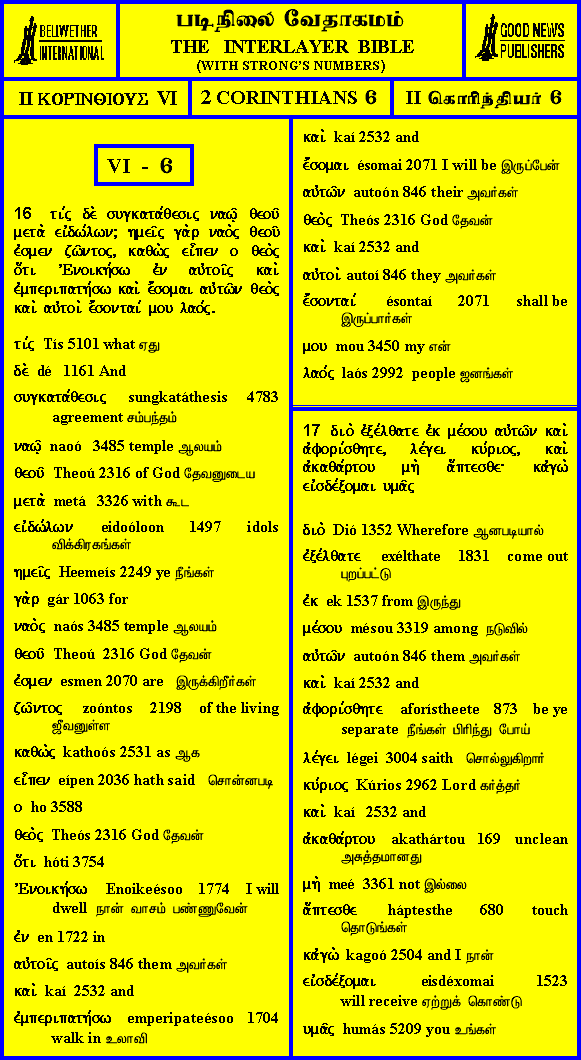 BELLWETHER
INTERNATIONAL
படிநிலை வேதாகமம்
THE INTERLAYER BIBLE
(WITH STRONG'S NUMBERS)
GOOD NEWS
PUBLISHERS
II ΚΟΡΙΝΘΙΟΥΣ VI
2 CORINTHIANS 6
II கொரிந்தியர் 6
VI - 6
16 τίς δὲ συγκατάθεσις ναῷ θεοῦ
μετὰ εἰδώλων; ημεῖς γὰρ ναὸς θεοῦ
ἐσμεν ζῶντος, καθὼς εἶπεν ο θεὸς
ὅτι Ἐνοικήσω ἐν αὐτοῖς καὶ
ἐμπεριπατήσω καὶ ἔσομαι αὐτῶν θεὸς
καὶ αὐτοὶ ἔσονταί μου λαός.
τίς Tís 5101 what ஏது
δὲ dé 1161 And
συγκατάθεσις sungkatáthesis 4783
agreement சம்பந்தம்
ναῷ naoó 3485 temple ஆலயம்
θεοῦ Theoú 2316 of God தேவனுடைய
μετὰ metá 3326 with கூட
εἰδώλων eidoóloon 1497 idols
விக்கிரகங்கள்
ημεῖς Heemeís 2249 ye நீங்கள்
γὰρ gár 1063 for
ναὸς naós 3485 temple ஆலயம்
θεοῦ Theoú 2316 God தேவன்
ἐσμεν esmen 2070 are இருக்கிறீர்கள்
ζῶντος zoóntos 2198 of the living
ஜீவனுள்ள
καθὼς kathoós 2531 as ஆக
εἶπεν eípen 2036 hath said சொன்னபடி
ο ho 3588
θεὸς Theós 2316 God தேவன்
ὅτι hóti 3754
Ἐνοικήσω Enoikeésoo 1774 I will
dwell நான் வாசம் பண்ணுவேன்
ἐν en 1722 in
αὐτοῖς autoís 846 them அவர்கள்
καὶ kaí 2532 and
ἐμπεριπατήσω emperipateésoo 1704
walk in உலாவி
καὶ kaí 2532 and
ἔσομαι ésomai 2071 I will be இருப்பேன்
αὐτῶν autoón 846 their அவர்கள்
θεὸς Theós 2316 God தேவன்
καὶ kaí 2532 and
αὐτοὶ autoí 846 they அவர்கள்
ἔσονταί ésontaí 2071 shall be
இருப்பார்கள்
μου mou 3450 my என்
λαός laós 2992 people ஜனங்கள்
17 διὸ ἐξέλθατε ἐκ μέσου αὐτῶν καὶ
ἀφορίσθητε, λέγει κύριος, καὶ
ἀκαθάρτου μὴ ἅπτεσθε· κἀγὼ
εἰσδέξομαι υμᾶς
διὸ Dió 1352 Wherefore ஆனபடியால்
ἐξέλθατε exélthate 1831 come out
புறப்பட்டு
ἐκ ek 1537 from இருந்து
μέσου mésou 3319 among நடுவில்
αὐτῶν autoón 846 them அவர்கள்
καὶ kaí 2532 and
ἀφορίσθητε aforístheete 873 be ye
separate நீங்கள் பிரிந்து போய்
λέγει légei 3004 saith சொல்லுகிறார்
κύριος Kúrios 2962 Lord கர்த்தர்
καὶ kaí 2532 and
ἀκαθάρτου akathártou 169 unclean
அசுத்தமானது
μὴ meé 3361 not இல்லை
ἅπτεσθε háptesthe 680 touch
தொடுங்கள்
κἀγὼ kagoó 2504 and I நான்
εἰσδέξομαι eisdéxomai 1523
will receive ஏற்றுக் கொண்டு
υμᾶς humás 5209 you உங்கள்